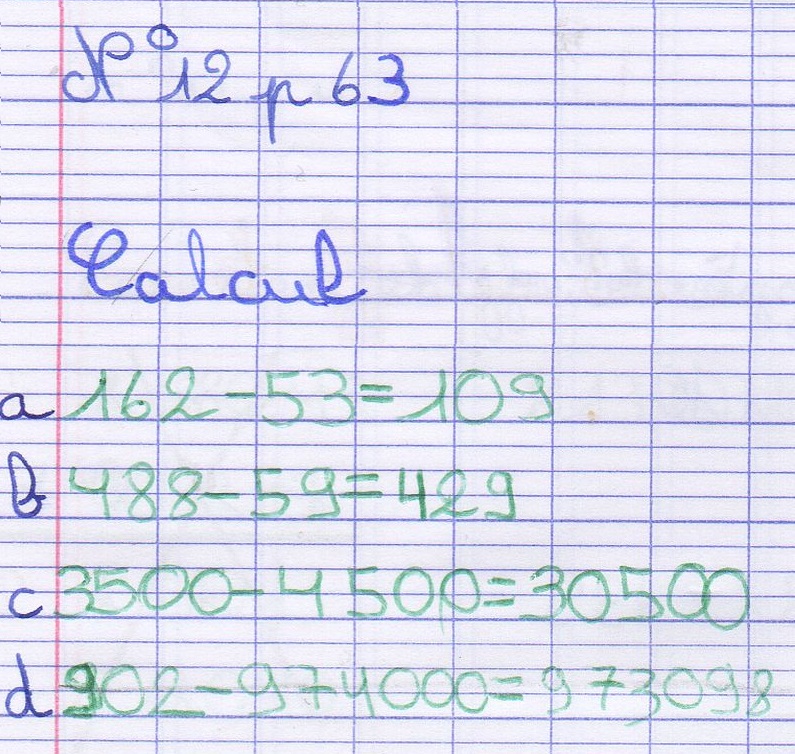 N° 12 p 63
Calcul
a 162-53=109
b 488-59=429
c 3500-4500=30500
d 902-974000=973098